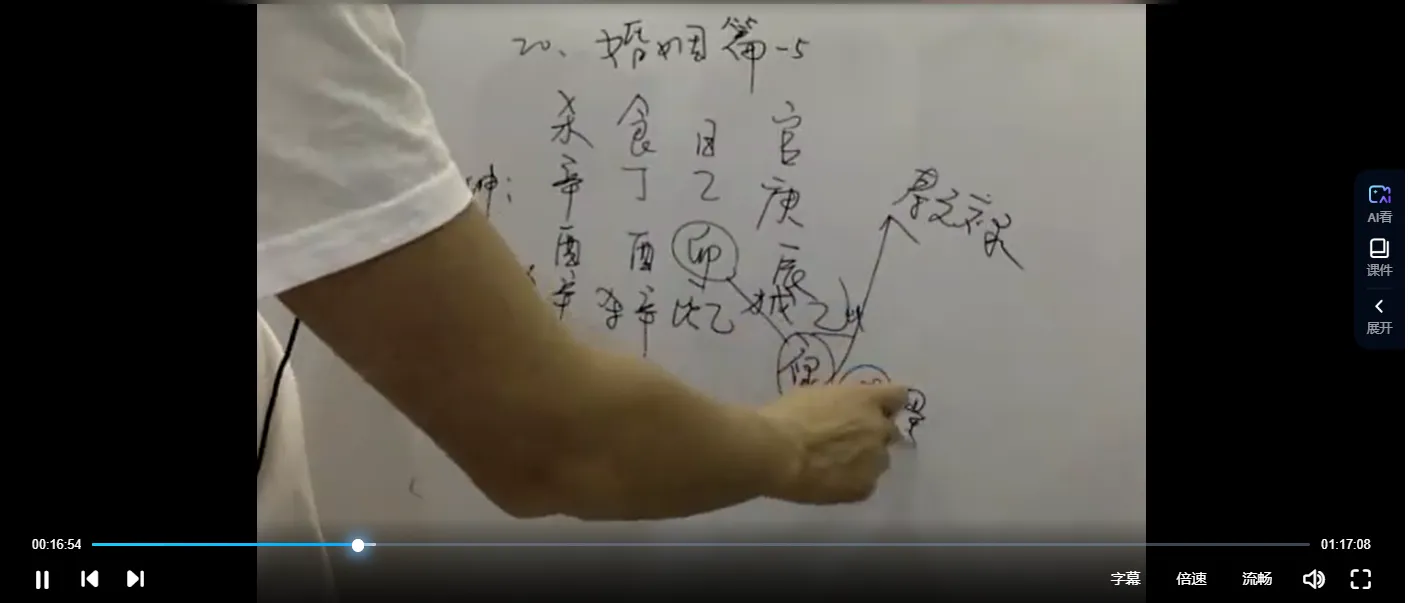 20、婚姻篇-5
杀 食 日 官
坤： 辛 丁 乙 庚
酉 酉 卯 辰
辛 杀辛 比乙
墓之禄
AI看
课件
展开
00:16:54
01:17:08
字幕 倍速 流畅